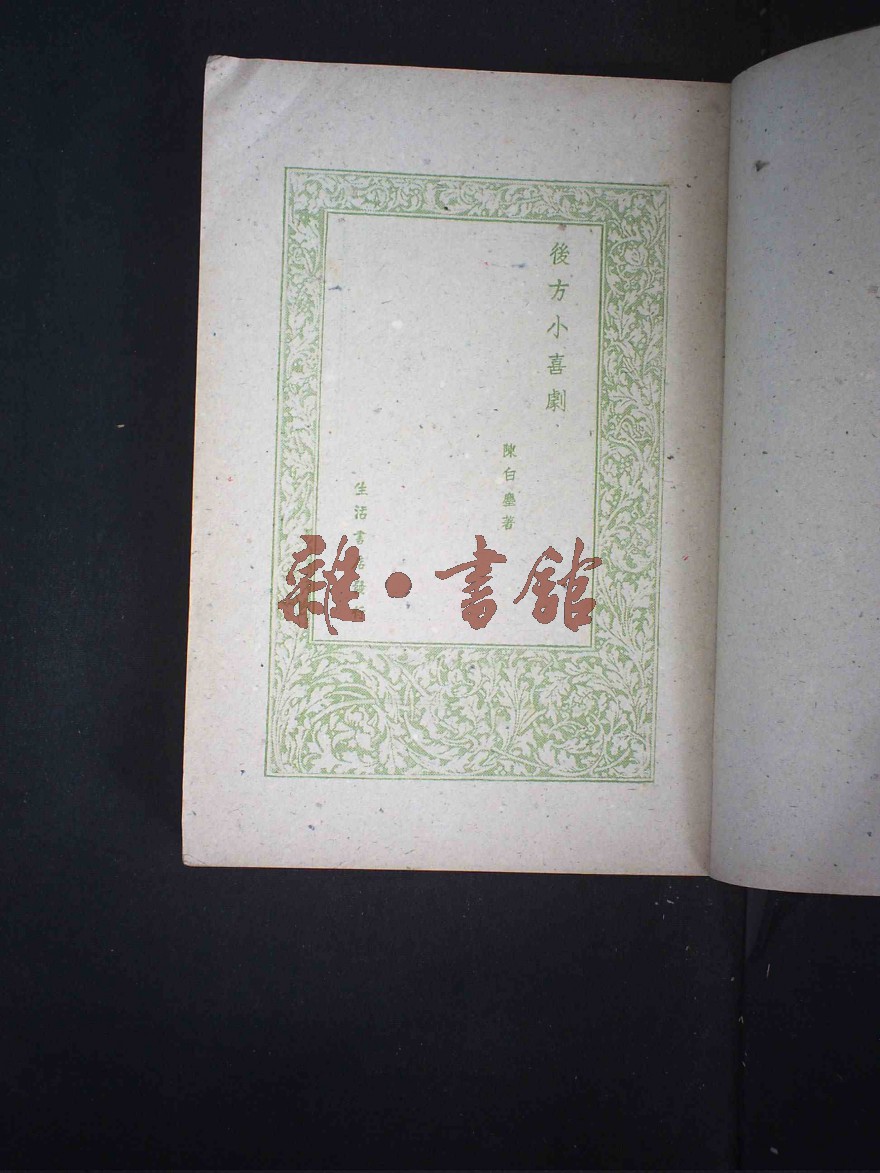 後方小喜劇
陳白塵著
生活書
雜·書館